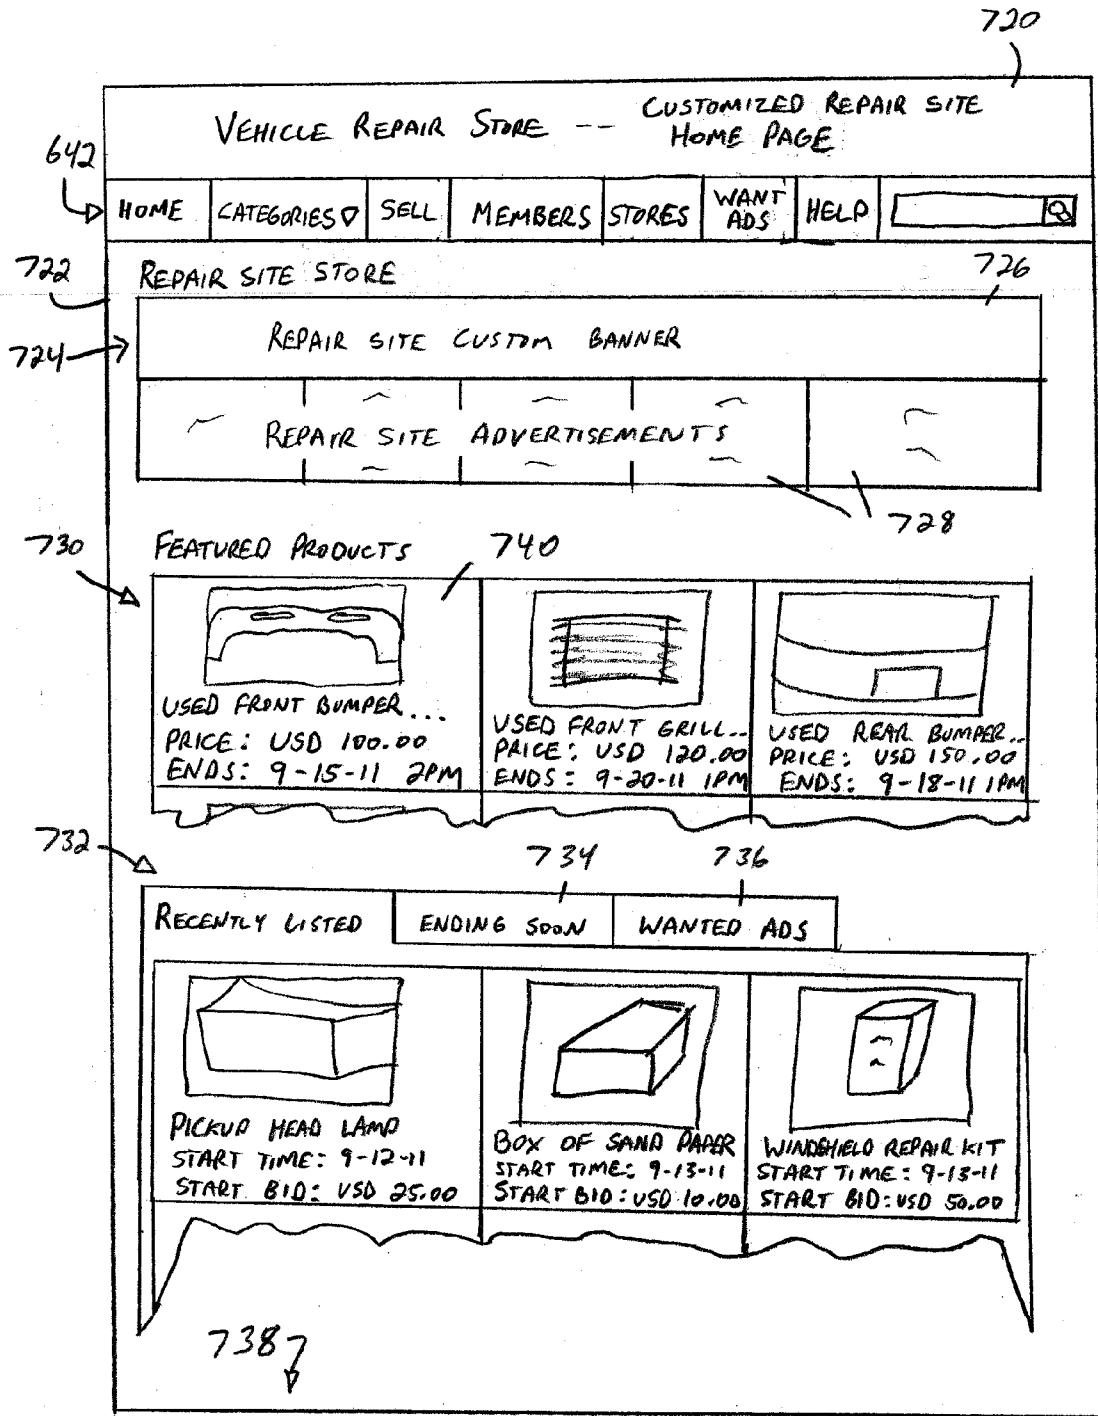 720
VEHICLE REPAIR STORE -- CUSTOMIZED REPAIR SITE
HOME PAGE
642
HOME CATEGORIES SELL MEMBERS STORES WANT ADS HELP
722
REPAIR SITE STORE
726
724
REPAIR SITE CUSTOM BANNER
REPAIR SITE ADVERTISEMENTS
728
730
FEATURED PRODUCTS
740
USED FRONT BUMPER...
PRICE: USD 100.00
ENDS: 9-15-11 2PM
USED FRONT GRILL...
PRICE: USD 120.00
ENDS: 9-20-11 1PM
USED REAR BUMPER...
PRICE: USD 150.00
ENDS: 9-18-11 1PM
732
734
736
RECENTLY LISTED ENDING SOON WANTED ADS
PICKUP HEAD LAMP
START TIME: 9-12-11
START BID: USD 25.00
BOX OF SAND PAPER
START TIME: 9-13-11
START BID: USD 10.00
WINDSHIELD REPAIR KIT
START TIME: 9-13-11
START BID: USD 50.00
738